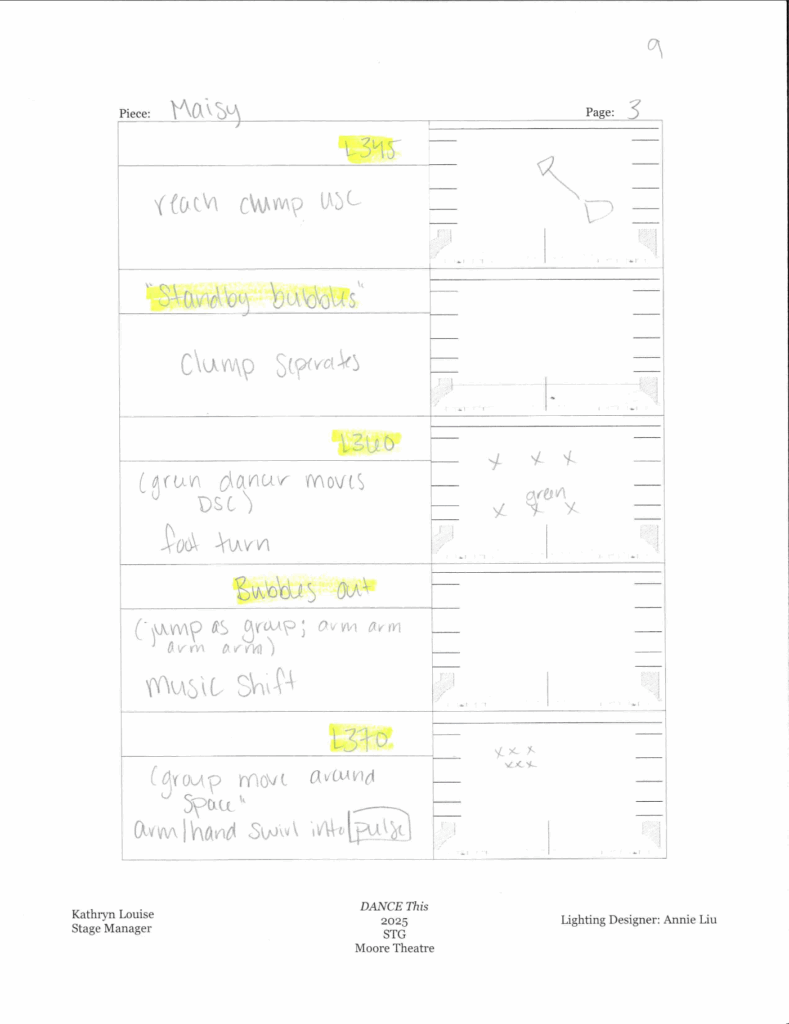 9
Piece: Maisy
Page: 3
L345
reach clump USC
"Standby bubbles"
Clump seperates
L360
(green dancer moves
DSC)
foot turn
X X X
green
X X X
Bubbles out
(jump as group; arm arm
arm arm)
Music Shift
L370
(group move around
space"
arm/hand swirl into pulse
X X X
X X X
Kathryn Louise
Stage Manager
DANCE This
2025
STG
Moore Theatre
Lighting Designer: Annie Liu